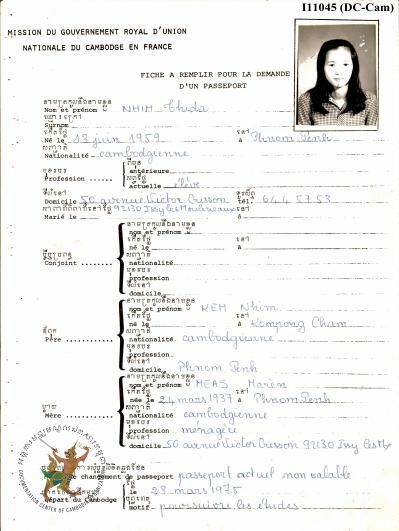 I11045 (DC-Cam)
MISSION DU GOUVERNEMENT ROYAL D'UNION
NATIONALE DU CAMBODGE EN FRANCE
FICHE A REMPLIR POUR LA DEMANDE
D'UN PASSEPORT
នាមត្រកូលនិងនាមខ្លួន
Nom et prénom NHIM Thida
Surnom
កើតថ្ងៃ នៅ
Né le 13 juin 1959 à Phnom Penh
សញ្ជាតិ
Nationalité cambodgienne
antérieure
Profession
actuelle élève
ទីលំនៅ
Domicile 50 avenue Victor Cresson tél. 644 57 53
92130 Issy les Moulineaux
Marié le à
nom et prénom
né le à
Conjoint nationalité
profession
domicile
nom et prénom KEM Nhim
né le à Kompong Cham
Père nationalité cambodgienne
profession
domicile Phnom Penh
nom et prénom MEAS
née le 24 mars 1937 à Phnom Penh
Mère nationalité cambodgienne
profession ménagère
domicile 50 avenue Victor Cresson 92130 Issy les
de changement de passeport passeport actuel non valable
le 23 mars 1975
départ du Cambodge
motif poursuivre les études
DOCUMENTATION CENTER OF CAMBODIA